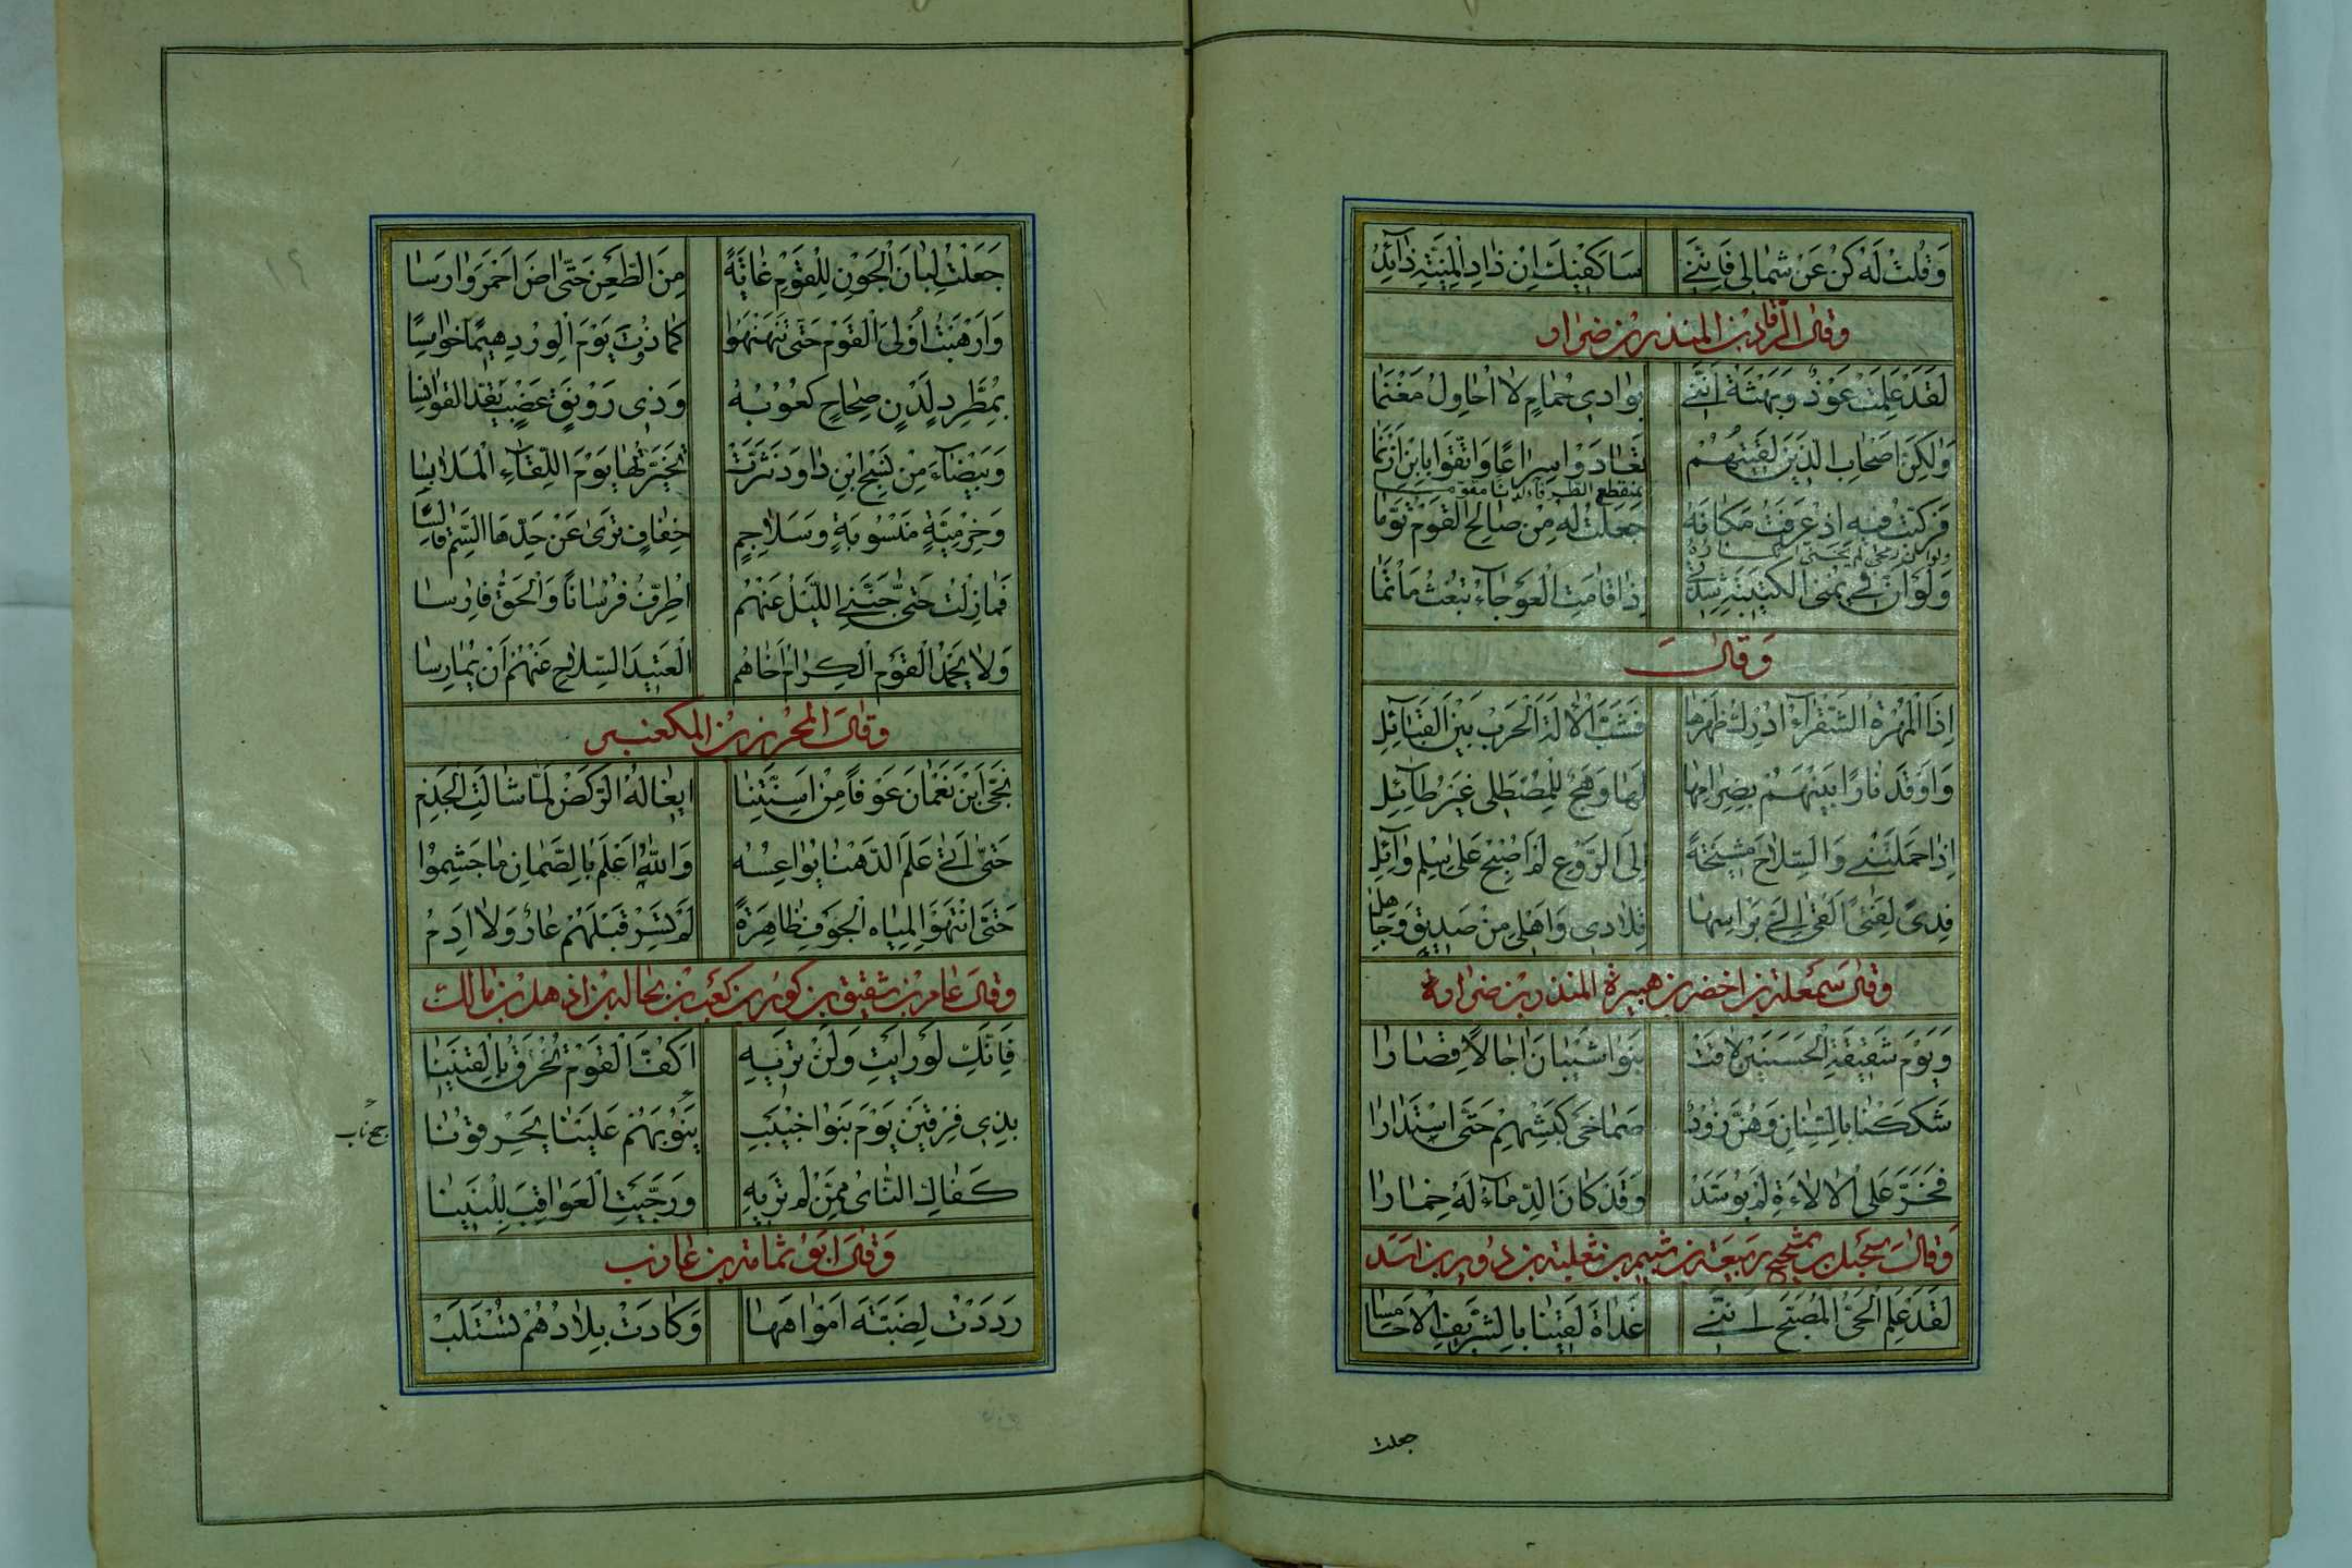 وَقُلْتُ لَهُ كُنْ عَنْ شِمَالِي فَاِنَّنِي سَاَكْفِيْكَ اِنْ ذَادَ الْمَنِيَّةَ ذَائِدُ
وقال الرقاد بن المنذر بن ضرار
لَقَدْ عَلِمَتْ عَوْذٌ وَبُهْثَةُ اَنَّنِي بِوَادِي حُمَامٍ لَا اُحَاوِلُ مَغْنَمَا
وَلَكِنَّ اَصْحَابِي الَّذِيْنَ لَقِيْتُهُمْ تَعَادَوْا سِرَاعًا وَاتَّقَوْا بِابْنِ اَزْنَمَا
فَرَكَّبْتُ فِيْهِ اِذْ عَرَفْتُ مَكَانَهُ بمنقطع الطرفاء لدنا مقوما
جَعَلْتُ لَهُ مِنْ صَالِحِ الْقَوْمِ تَوْءَمَا
وَلَوْ اَنَّ فِي يُمْنَى الْكَتِيْبَةِ شِدَّتِي اِذًا قَامَتِ الْعَوْجَاءُ تَبْعَثُ مَاْتَمَا
وَقَالَ
اِذَا الْمُهْرَةُ الشَّقْرَاءُ اُدْرِكَ ظَهْرُهَا فَشَبَّ الْاِلَهُ الْحَرْبَ بَيْنَ الْقَبَائِلِ
وَاَوْقَدَ نَارًا بَيْنَهُمْ بِضِرَامِهَا لَهَا وَهَجٌ لِلْمُصْطَلِي غَيْرُ طَائِلِ
اِذَا حَمَلَتْنِي وَالسِّلَاحَ مُشِيْحَةً اِلَى الرَّوْعِ لَمْ اُصْبِحْ عَلَى سِلْمِ وَائِلِ
فِدًى لِفَتًى اَلْقَى اِلَيَّ بِرَاْسِهَا تِلَادِي وَاَهْلِي مِنْ صَدِيْقٍ وَجَامِلِ
وقال شمعلة بن اخضر بن هبيرة المنذر بن ضرار
وَيَوْمَ شَقِيْقَةِ الْحَسَنَيْنِ لَاقَتْ بَنُوا شَيْبَانَ اٰجَالًا قِصَارَا
شَكَكْنَا بِالسِّنَانِ وَهُنَّ زُوْرٌ صِمَاخَيْ كَبْشِهِمْ حَتَّى اسْتَدَارَا
فَخَرَّ عَلَى الْاَلَاءَةِ لَمْ يُوَسَّدْ وَقَدْ كَانَ الدِّمَاءُ لَهُ خِمَارَا
وَقَالَ حسيل بن سجيح ربيعة بن شييم بن ثعلبة بن ذويب بن اسد
لَقَدْ عَلِمَ الْحَيُّ الْمُصَبَّحُ اَنَّنِي غَدَاةَ لَقِيْنَا بِالشَّرِيْفِ الْاَحَامِسَا
جعلت
جَعَلْتُ لَبَانَ الْجَوْنِ لِلْقَوْمِ غَايَةً مِنَ الطَّعْنِ حَتَّى اٰضَ اَحْمَرَ وَارِسَا
وَاَرْهَبْتُ اُوْلَى الْقَوْمِ حَتَّى تَنَهْنَهُوا كَمَا ذُدْتَ يَوْمَ الْوِرْدِ هِيْمًا خَوَامِسَا
بِمُطَّرِدٍ لَدْنٍ صِحَاحٍ كُعُوْبُهُ وَذِي رَوْنَقٍ عَضْبٍ يَقُدُّ الْقَوَانِسَا
وَبَيْضَاءَ مِنْ نَسْجِ ابْنِ دَاوُدَ نَثْرَةٍ تَخَيَّرْتُهَا يَوْمَ اللِّقَاءِ الْمَلَابِسَا
وَحِرْمِيَّةٍ مَنْسُوْبَةٍ وَسَلَاجِمٍ خِفَافٍ تَرَى عَنْ حَدِّهَا السَّمَّ قَالِسَا
فَمَا زِلْتُ حَتَّى جَنَّنِي اللَّيْلُ عَنْهُمُ اُطَرِّفُ فُرْسَانًا وَاُلْحِقُ فَارِسَا
وَلَا يَحْمَدُ الْقَوْمُ الْكِرَامُ اَخَاهُمُ الْعَتِيْدَ السِّلَاحِ عَنْهُمُ اَنْ يُمَارِسَا
وَقَالَ المحرز بن المكعبر
نَجَّى ابْنَ نَعْمَانَ عَوْفًا مِنْ اَسِنَّتِنَا اِيْغَالُهُ الرَّكْضَ لَمَّا شَالَتِ الْجِذَمُ
حَتَّى اَتَى عَلَمَ الدَّهْنَا يُوَاعِسُهُ وَاللّٰهُ اَعْلَمُ بِالصَّمَّانِ مَا جَشِمُوا
حَتَّى انْتَهَوْا لِمِيَاهِ الْجَوْفِ ظَاهِرَةً لَمْ تَسِرْ قَبْلَهُمْ عَادٌ وَلَا اِرَمُ
وقال عامر بن شقيق بن كوز بن كعب بن بجالة بن ذهل بن مالك
فَاِنَّكِ لَوْ رَاَيْتِ وَلَنْ تَرَيْهِ اَكُفَّ الْقَوْمِ تُخْرَقُ بِالْقَنِيْنَا
بِذِي فِرْقَيْنِ يَوْمَ بَنُوا حُبَيْبٍ نُيُوْبَهُمُ عَلَيْنَا يَحْرِقُوْنَا
جمع ناب
كَفَاكِ النَّأْيُ مِمَّنْ لَمْ تَرَيْهِ وَرَجَّيْتِ الْعَوَاقِبَ لِلْبَنِيْنَا
وَقَالَ ابو ثمامة بن عازب
رَدَدْتُ لِضَبَّةَ اَمْوَاهَهَا وَكَادَتْ بِلَادُهُمُ تُسْتَلَبْ